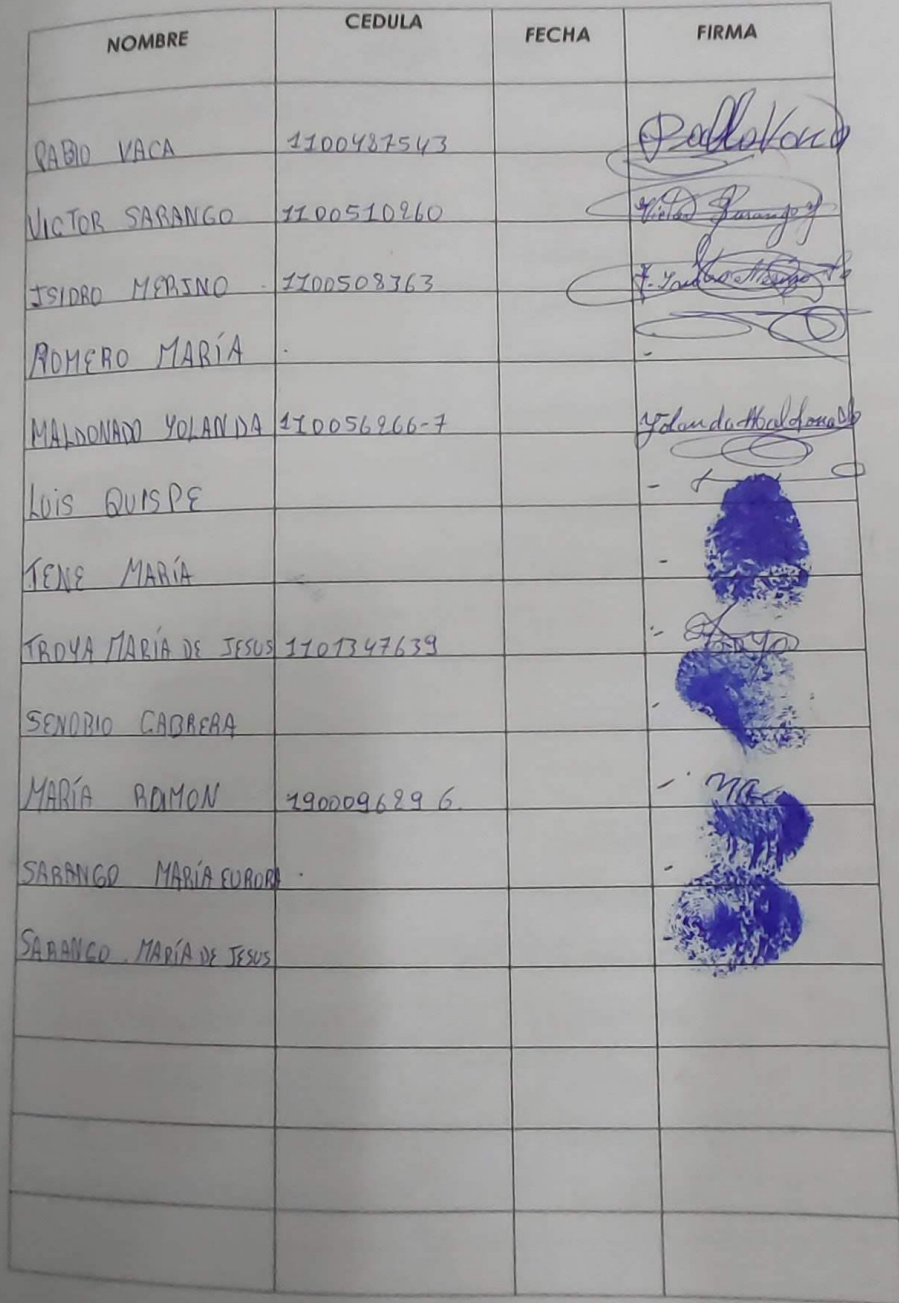 NOMBRE CEDULA FECHA FIRMA
PABIO VACA 1100487543
VICTOR SARANGO 1100510260 Victor Sarango
ISIDRO MERINO 1100508363
ROMERO MARÍA
MALDONADO YOLANDA 110056266-7 Yolanda Maldonado
LUIS QUISPE
TENE MARÍA
TROYA MARÍA DE JESUS 1101347639 Troya
SENOBIO CABRERA
MARÍA RAMON 190009629 6.
SARANGO MARÍA EURORA
SARANGO MARÍA DE JESUS